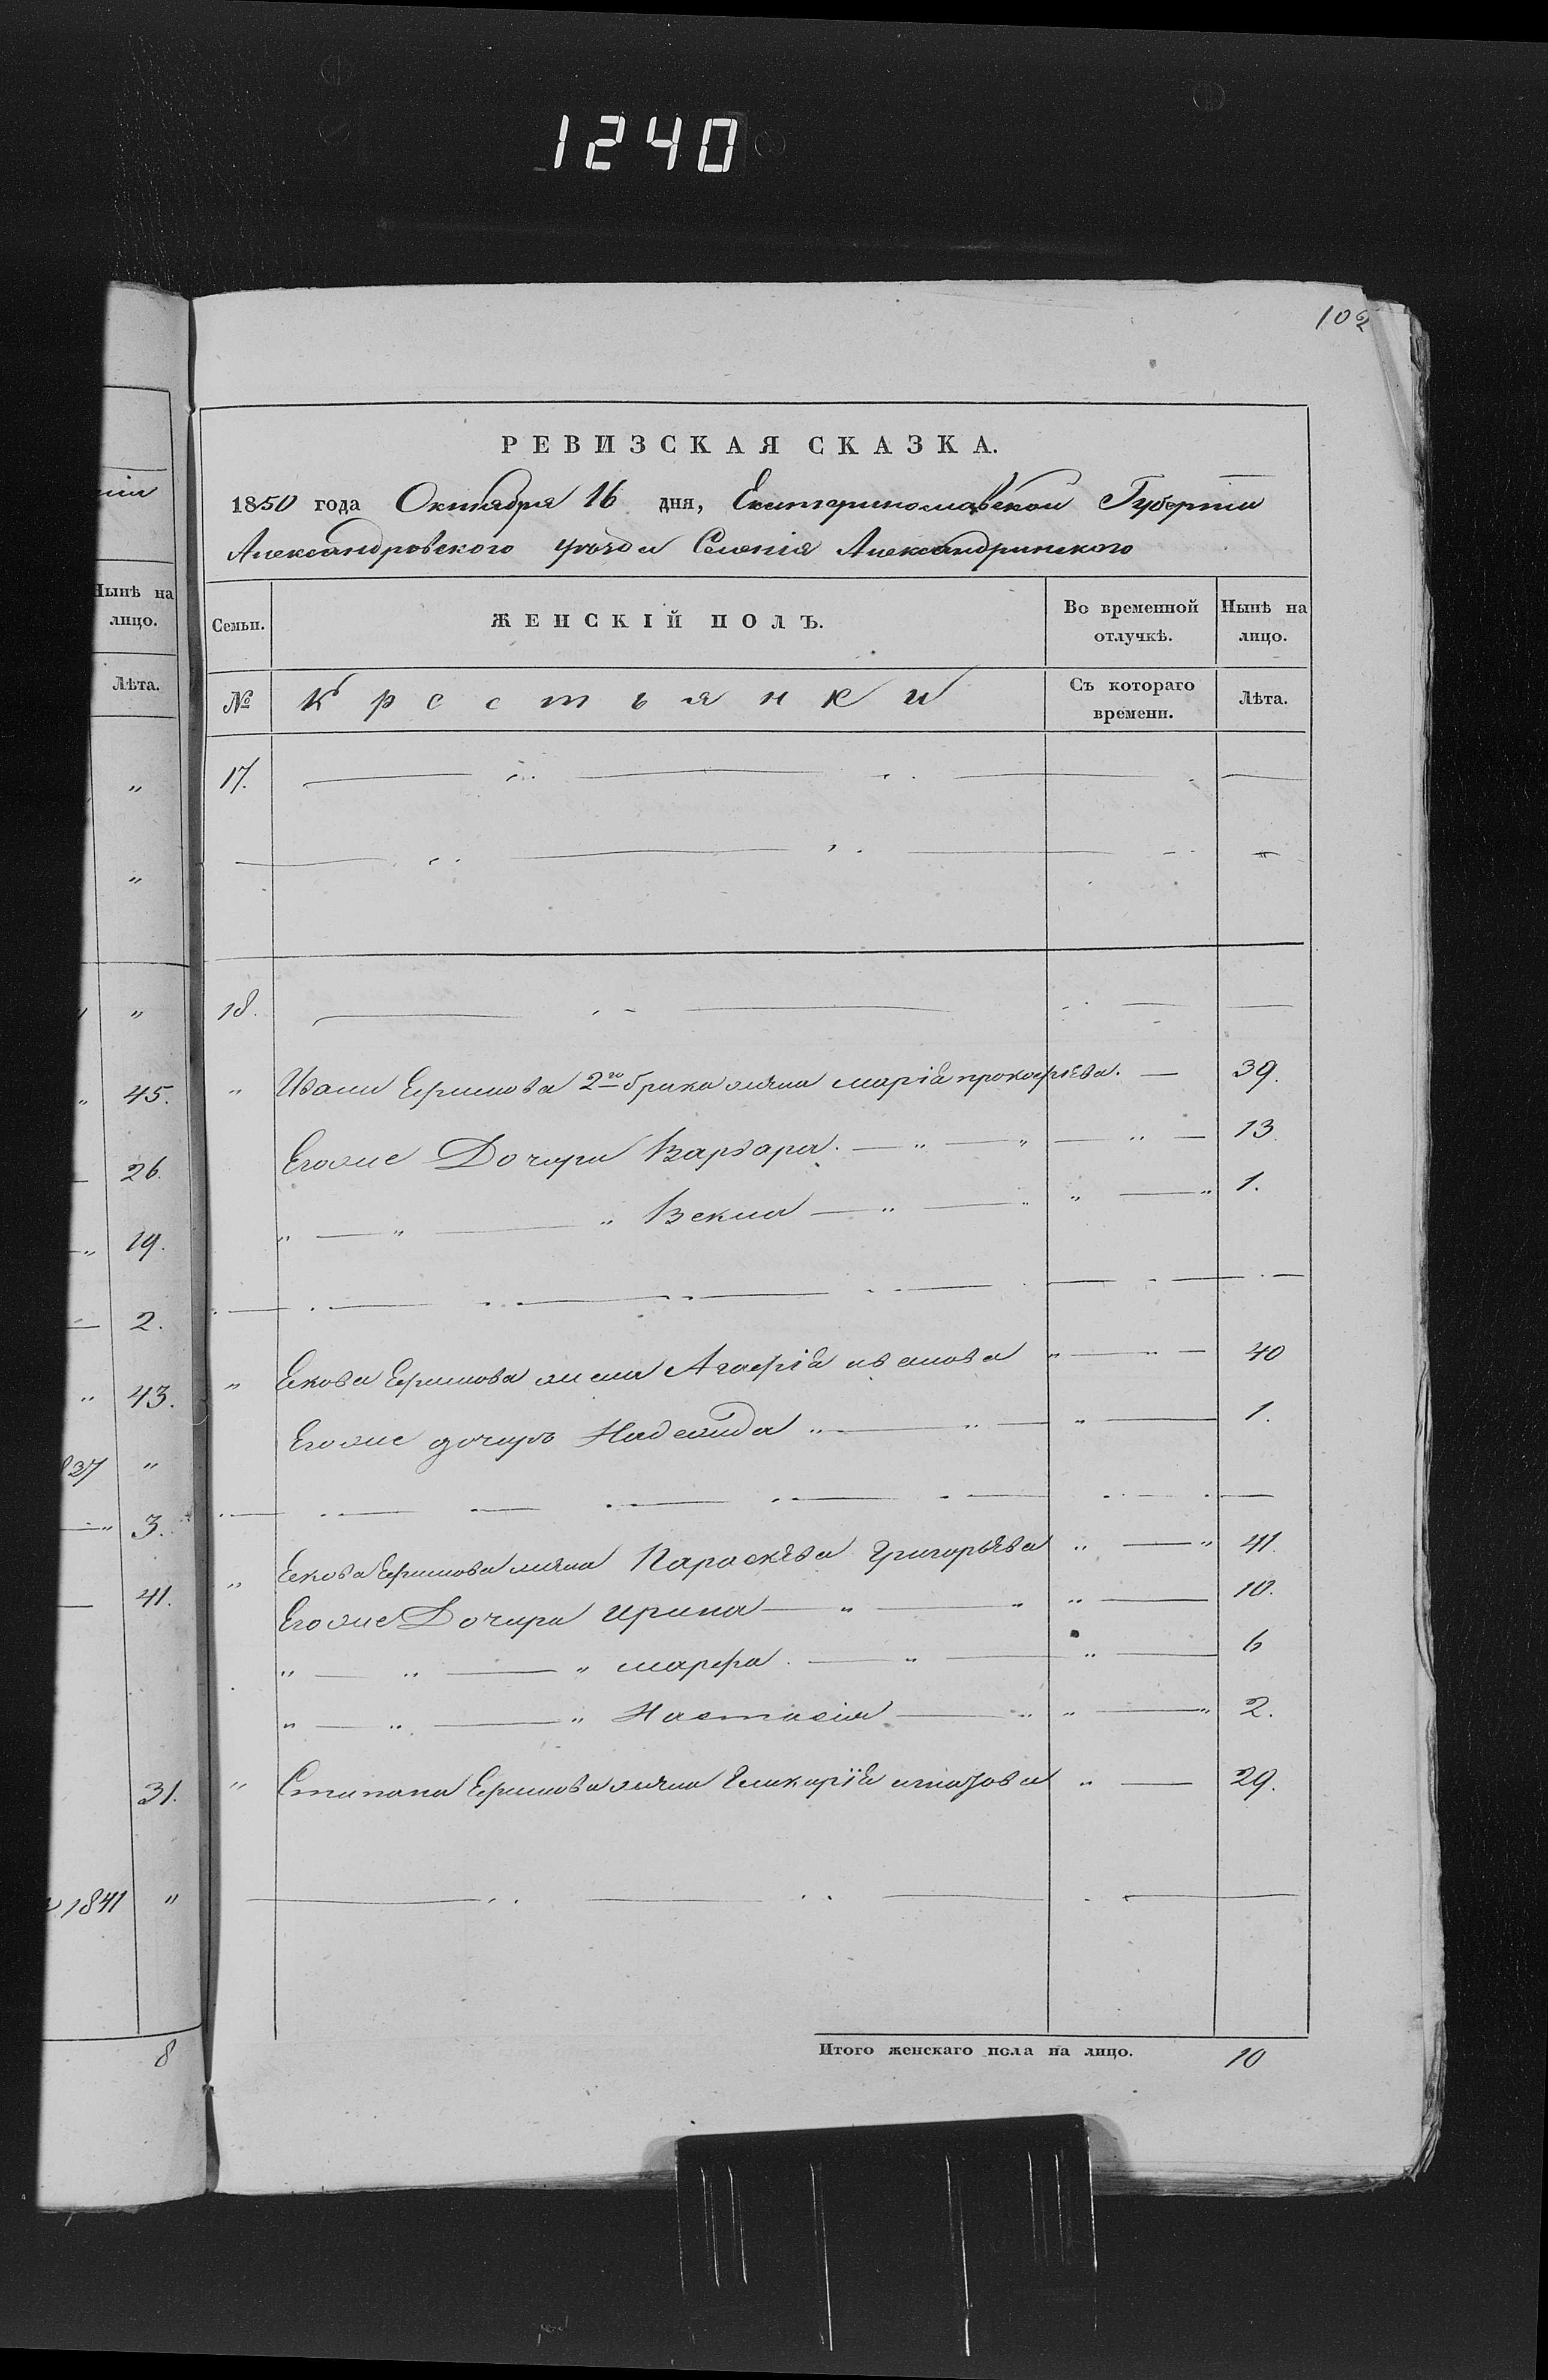 1240
102
РЕВИЗСКАЯ СКАЗКА.
1850 года Октября 16 дня, Екатеринославской Губерніи
Александровского уѣзда Селенія Александринского
Семьи. ЖЕНСКІЙ ПОЛЪ. Во временной отлучкѣ. Нынѣ на лицо.
№ Крестьянки Съ котораго времени. Лѣта.
17.
18.
" Ивана Ефимова 2го брака жена марія прокофіева. — 39.
Егоже Дочери Варвара. — " — " — " — 13.
" — " — " Векла — " — " " — " 1.
" Екова Ефимова жена Агафія иванова " — " — 40
Егоже дочерь Надежда " — " — " — 1.
" Екова Ефимова жена Параскева Григорьева " — " 41.
Егоже Дочери Ирина — " — " " — 10.
" — " — " марфа. — " — " — 6
" — " — " Настасія — " " — " 2.
" Степана Ефимова жена Гликарія " — 29.
Итого женскаго пола на лицо. 10
Нынѣ на
лицо.
Лѣта.
"
"
"
45.
26.
19.
2.
43.
837 "
3.
41.
31.
1841 "
8